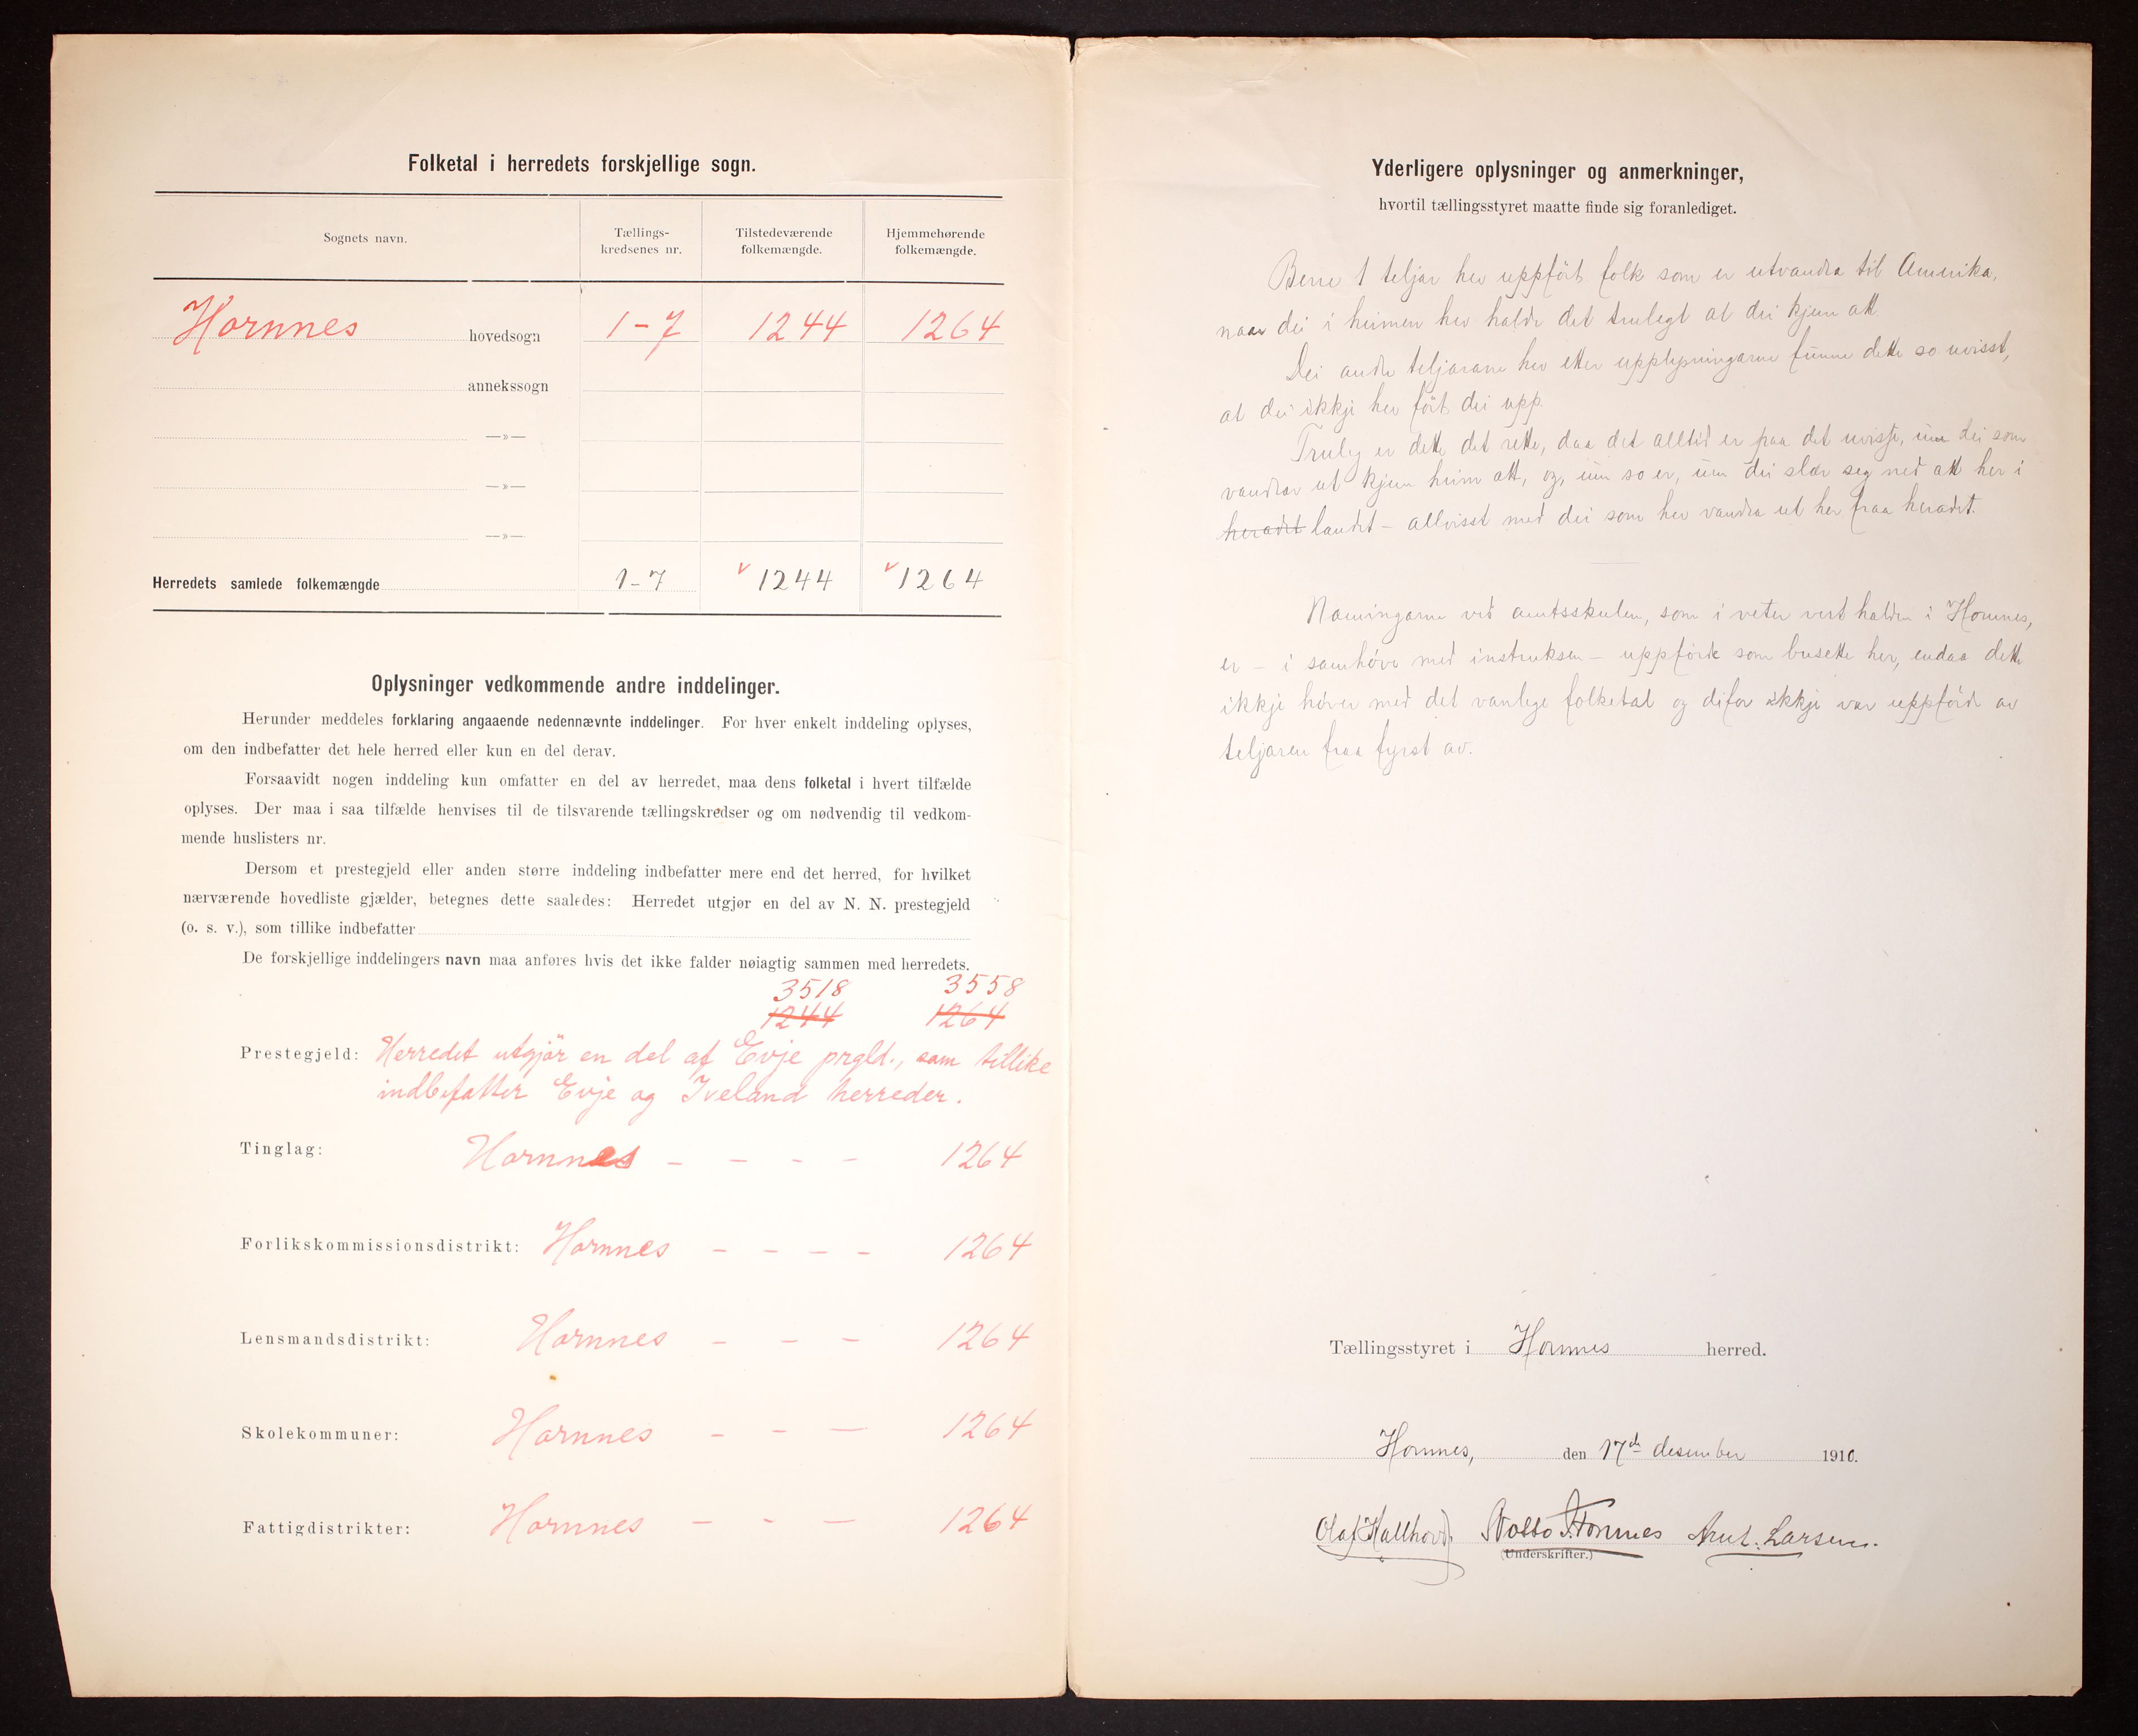 Folketal i herredets forskjellige sogn.
Sognets navn.
Tællings-
kredsenes nr.
Tilstedeværende
folkemængde.
Hjemmehørende
folkemængde.
Hornnes hovedsogn 1-7 1244 1264
annekssogn
—»—
—»—
—»—
Herredets samlede folkemængde 1-7 v 1244 v 1264
Oplysninger vedkommende andre inddelinger.
Herunder meddeles forklaring angaaende nedennævnte inddelinger. For hver enkelt inddeling oplyses,
om den indbefatter det hele herred eller kun en del derav.
Forsaavidt nogen inddeling kun omfatter en del av herredet, maa dens folketal i hvert tilfælde
oplyses. Der maa i saa tilfælde henvises til de tilsvarende tællingskredser og om nødvendig til vedkom-
mende huslisters nr.
Dersom et prestegjeld eller anden større inddeling indbefatter mere end det herred, for hvilket
nærværende hovedliste gjælder, betegnes dette saaledes: Herredet utgjør en del av N. N. prestegjeld
(o. s. v.), som tillike indbefatter
De forskjellige inddelingers navn maa anføres hvis det ikke falder nøiagtig sammen med herredets.
3518 3558
1244 1264
Prestegjeld: Herredet utgjör en del af Evje prgld., som tillike
indbefatter Evje og Iveland herreder.
Tinglag: Hornnes - - - - 1264
Forlikskommissionsdistrikt: Hornnes - - - - 1264
Lensmandsdistrikt: Hornnes - - - 1264
Skolekommuner: Hornnes - - - 1264
Fattigdistrikter: Hornnes - - - 1264
Yderligere oplysninger og anmerkninger,
hvortil tællingsstyret maatte finde sig foranlediget.
Berre 1 teljar hev uppfört folk som er utvandra til Amerika,
naar dei i heimen hev halde det trulegt at dei kjem att.
Dei andre teljarane hev etter upplysningarne funne dette so uvisst,
at dei ikkje hev fört dei upp.
Truleg er dette det rette, daa det alltid er paa det uvisse, um dei som
vandrar ut kjem heim att, og, um so er, um dei slær seg ned att her i
heradet landet - allvisst med dei som hev vandra ut her fraa heradet.
Næmingarne vid amtsskulen, som i veter vert halden i Hornnes,
er - i samhöve med instruksen - uppförde som busette her, endaa dette
ikkje höver med det vanlege folketal og difor ikkje var uppförde av
teljaren fraa fyrst av.
Tællingsstyret i Hornnes herred.
Hornnes, den 17de desember 1910.
Olaf Hallhovd. Notto Hornnes Knut Larsen.
(Underskrifter.)